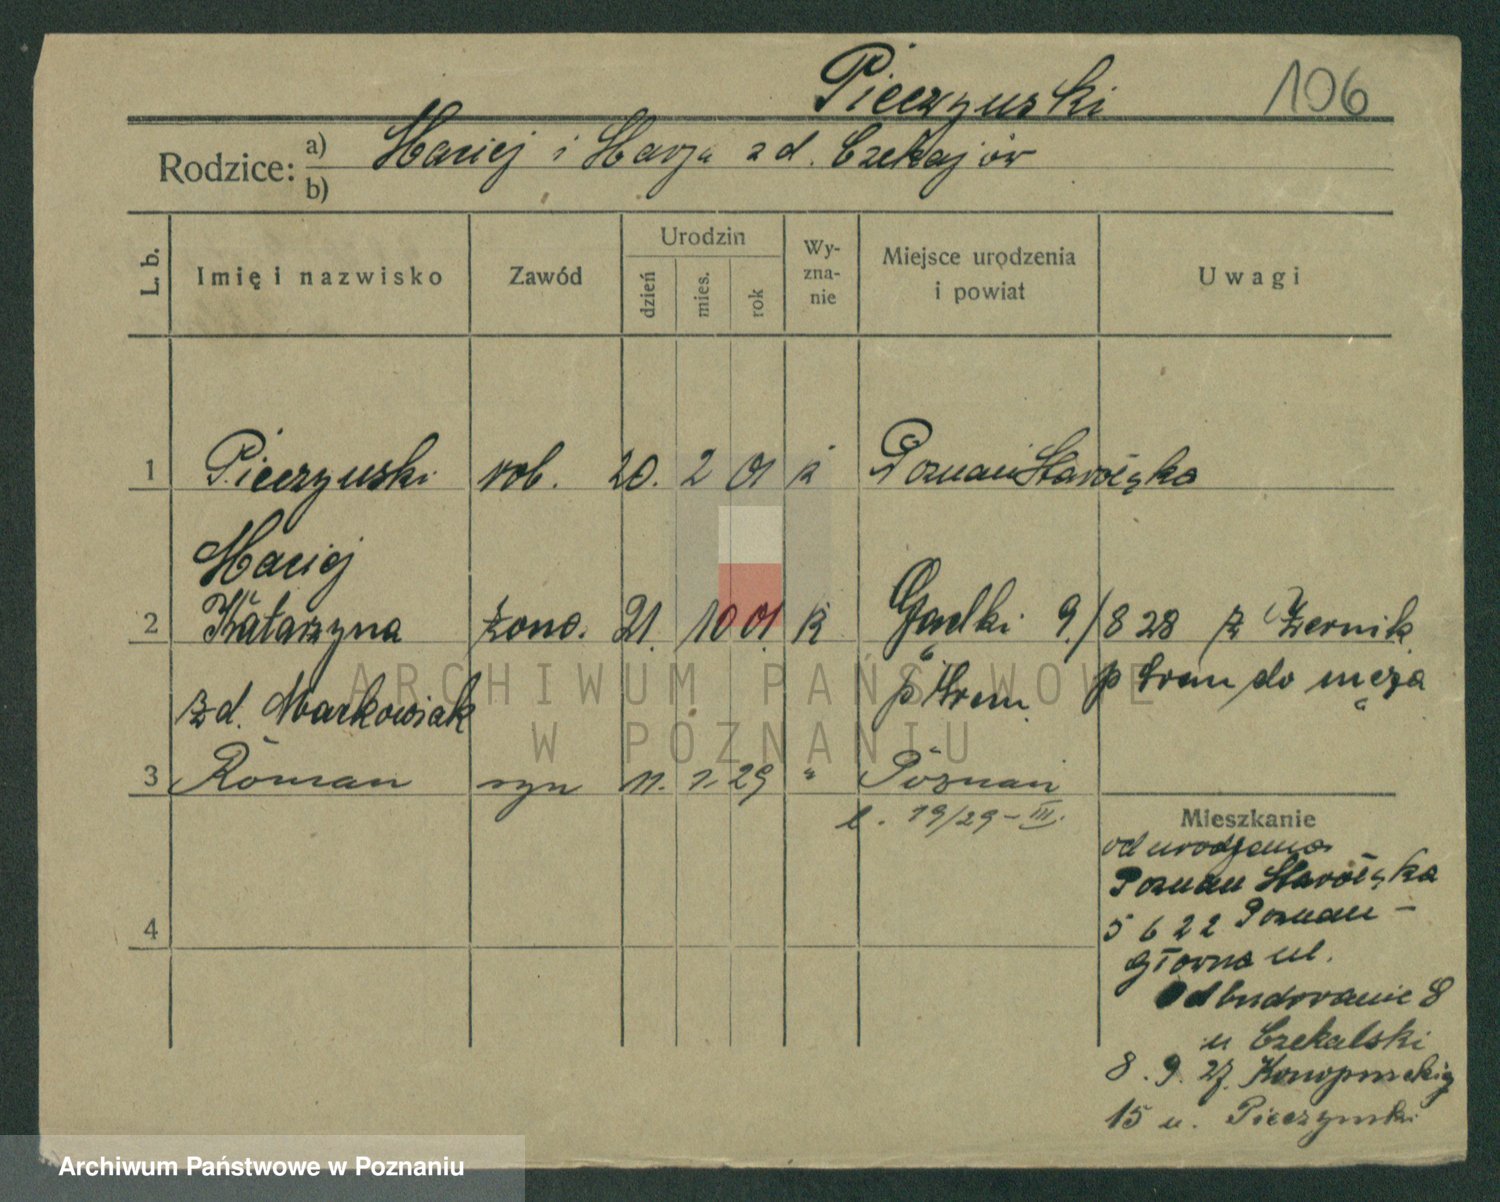 Pieczyński 106
Rodzice: a) Maciej i Marja z d. Czekajów
b)
L. b. Imię i nazwisko Zawód Urodzin dzień mies. rok Wyznanie Miejsce urodzenia i powiat Uwagi
1 Pieczyński rob. 20. 2 01 k Poznań Starołęka
Maciej
2 Katarzyna żona. 21. 10 01 k Gądki 9./8 28 z Żernik
z d. Markowiak p Śrem p Śrem do męża
3 Roman syn 11. 1. 29 " Poznań
l. 19/29 - III.
Mieszkanie
od urodzenia
Poznań Starołęka
5 6 22 Poznań -
4
główna ul.
Odbudowanie 8
u Czekalski
8. 9. 27. Konopnickiej
15 u. Pieczyński
ARCHIWUM PAŃSTWOWE
W POZNANIU
Archiwum Państwowe w Poznaniu